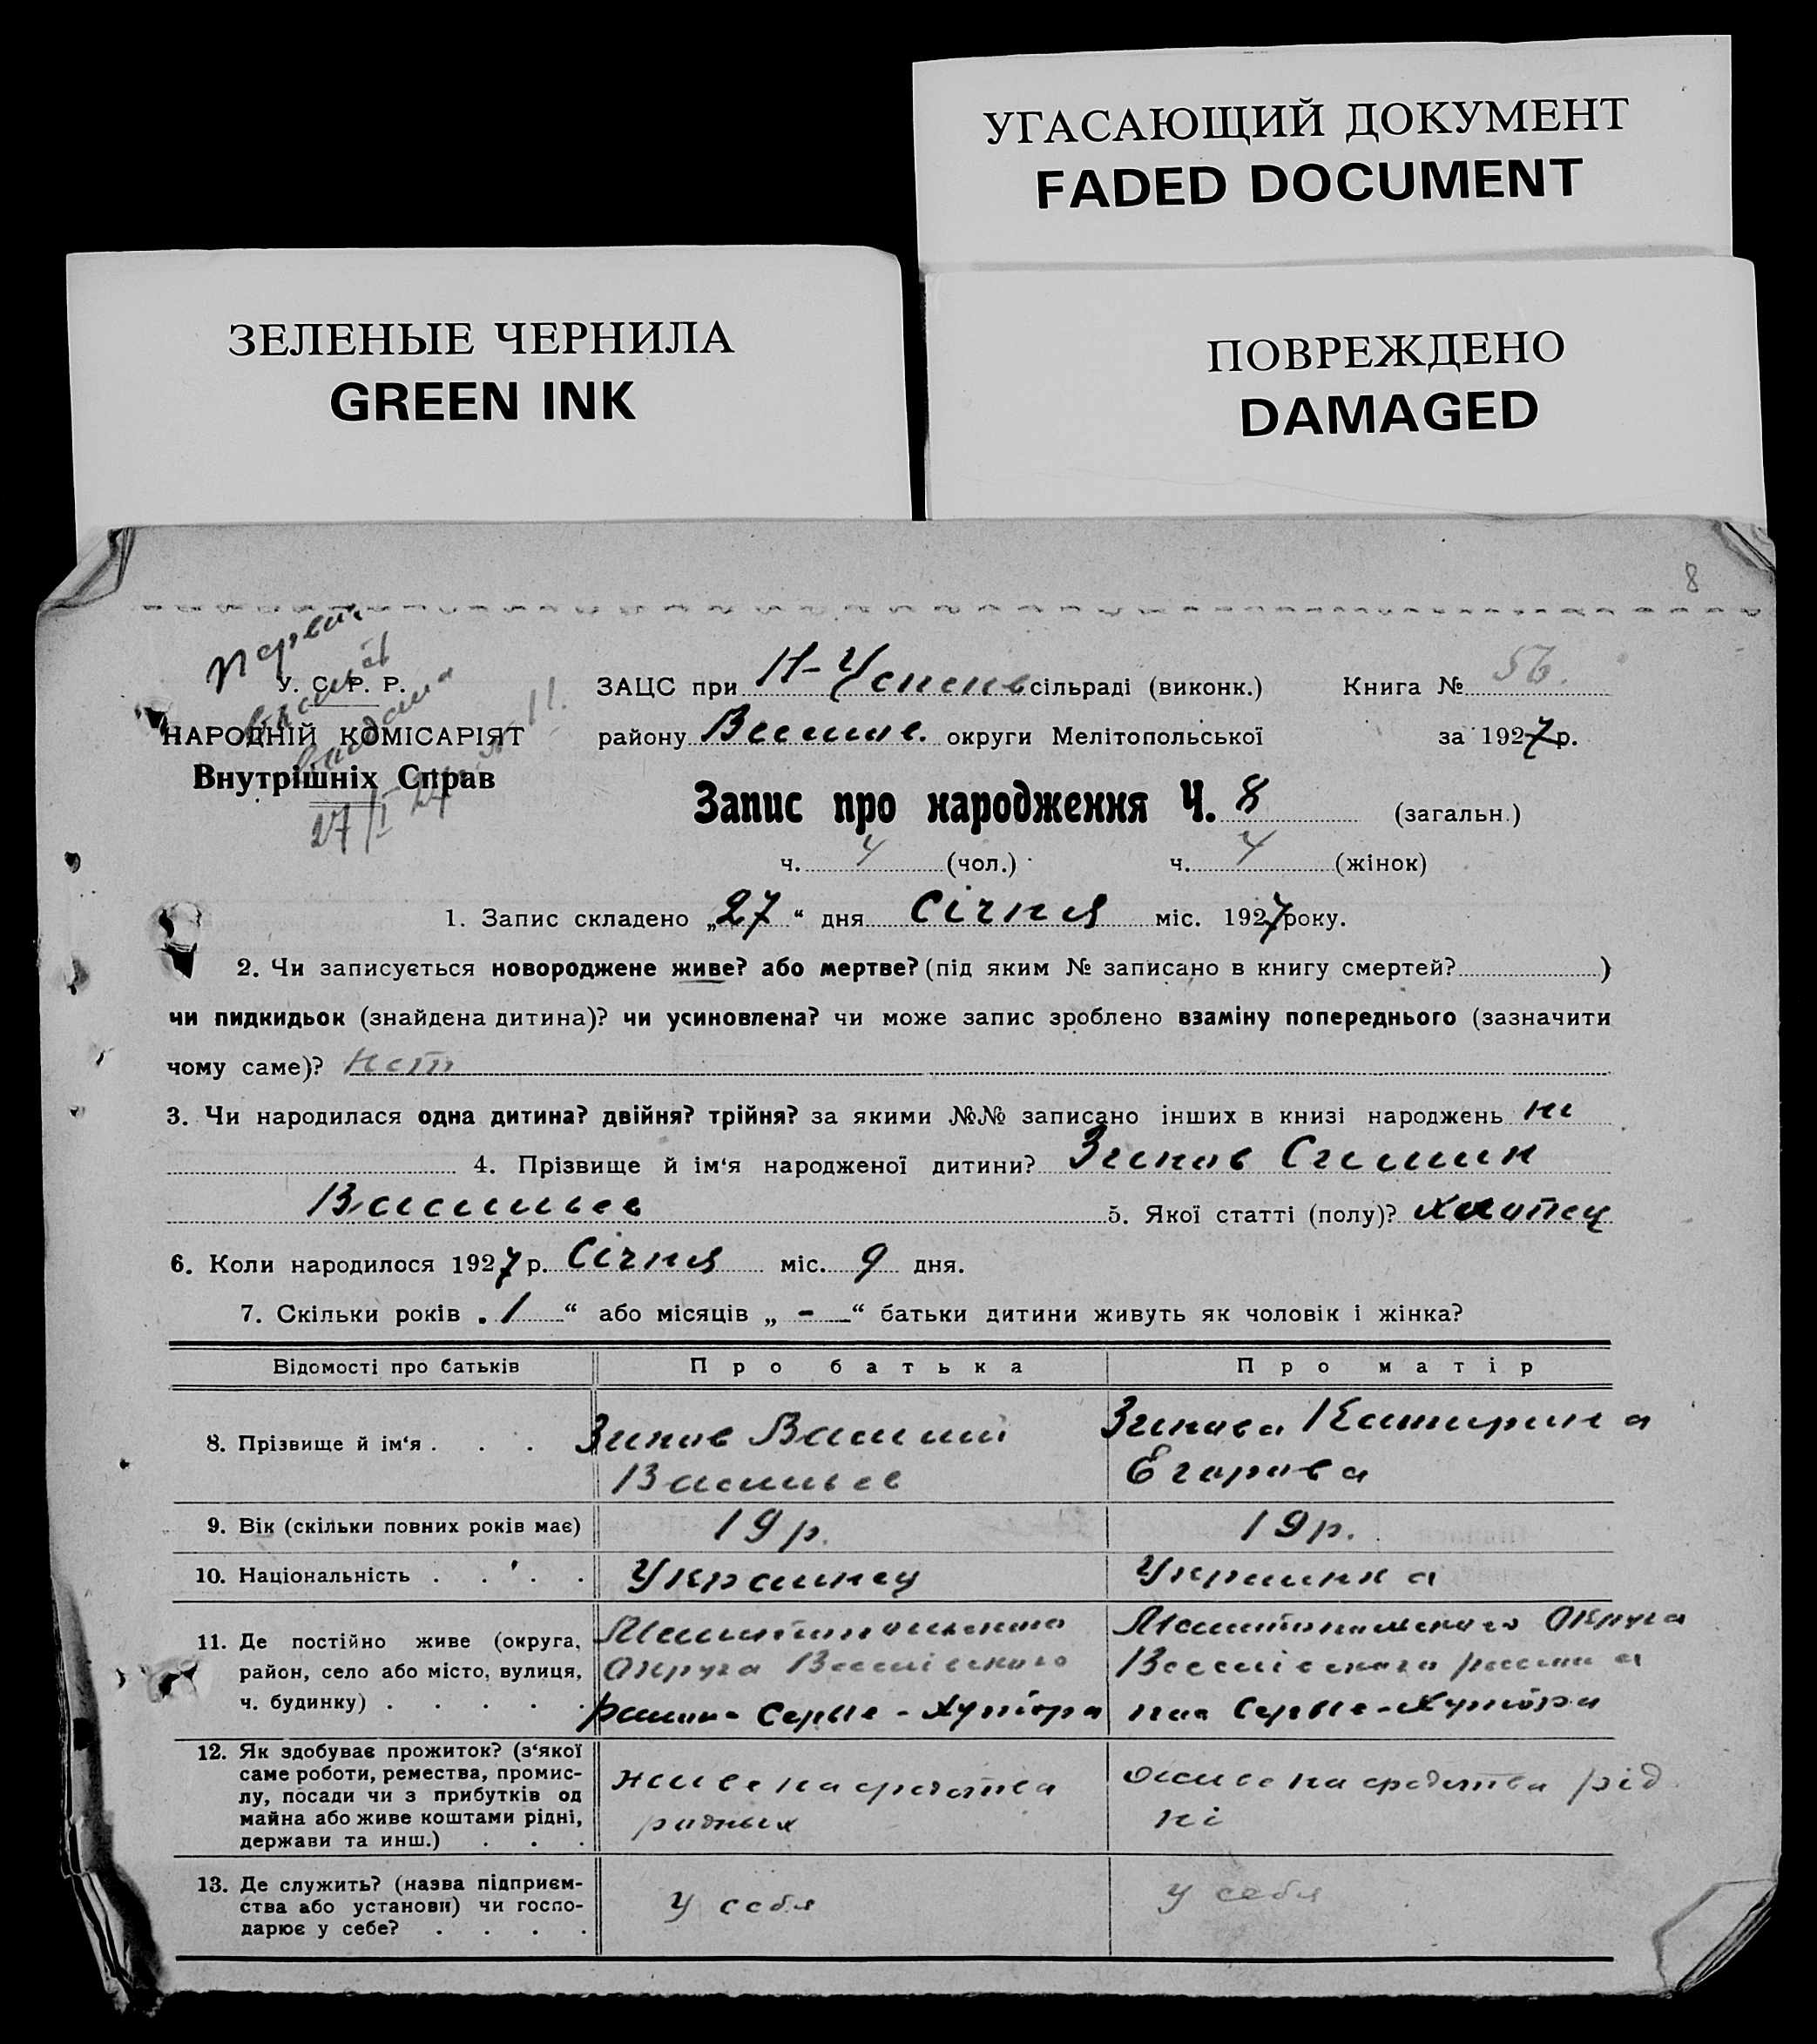 УГАСАЮЩИЙ ДОКУМЕНТ
FADED DOCUMENT
ЗЕЛЕНЫЕ ЧЕРНИЛА
GREEN INK
ПОВРЕЖДЕНО
DAMAGED
8
У. С. Р. Р.
НАРОДНІЙ КОМІСАРІЯТ
Внутрішніх Справ
ЗАЦС при Н-Успенв сільраді (виконк.) Книга № 5b.
району Веселов. округи Мелітопольської за 1927 р.
Запис про народження Ч. 8 (загальн.)
ч. 4 (чол.) ч. 4 (жінок)
1. Запис складено „27“ дня Січня міс. 1927 року.
2. Чи записується новороджене живе? або мертве? (під яким № записано в книгу смертей? )
чи пидкидьок (знайдена дитина)? чи усиновлена? чи може запис зроблено взаміну попереднього (зазначити
чому саме)? нет
3. Чи народилася одна дитина? двійня? трійня? за якими №№ записано інших в книзі народжень не
4. Прізвище й ім‘я народженої дитини? Зинов
Васильев 5. Якої статті (полу)? хлопец
6. Коли народилося 1927 р. Січня міс. 9 дня.
7. Скільки років „ 1 “ або місяців „ - “ батьки дитини живуть як чоловік і жінка?
Відомості про батьків Про батька Про матір
8. Прізвище й ім‘я . . . Зинов Василий Зинова Катирина
Васильев Егорова
9. Вік (скільки повних років має) 19 р. 19 р.
10. Національність . . . . Украинец Украинка
11. Де постійно живе (округа, Мелитопольского Мелитопольского Округа
район, село або місто, вулиця, Округа Веселівского Веселівского
ч. будинку) . . . . . Серые-Хутора Серые-Хутора
12. Як здобуває прожиток? (з‘якої
саме роботи, ремества, промис- живе на средства живе на средства рід
лу, посади чи з прибутків од родных ні
майна або живе коштами рідні,
держави та инш.) . . .
13. Де служить? (назва підприєм-
ства або установи) чи госпо- у себя у себя
дарює у себе? . . . .